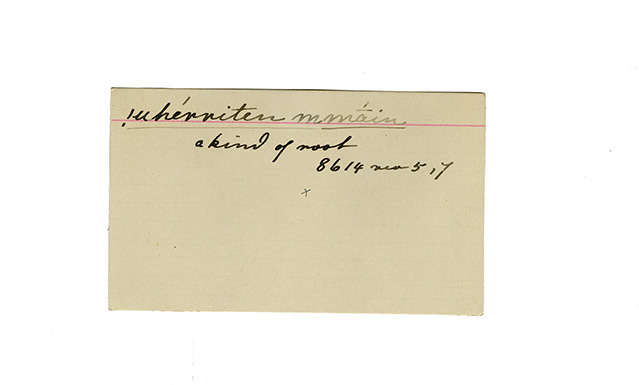 ıuhérriten mmáin
a kind of root
8614 rev 5,7
x